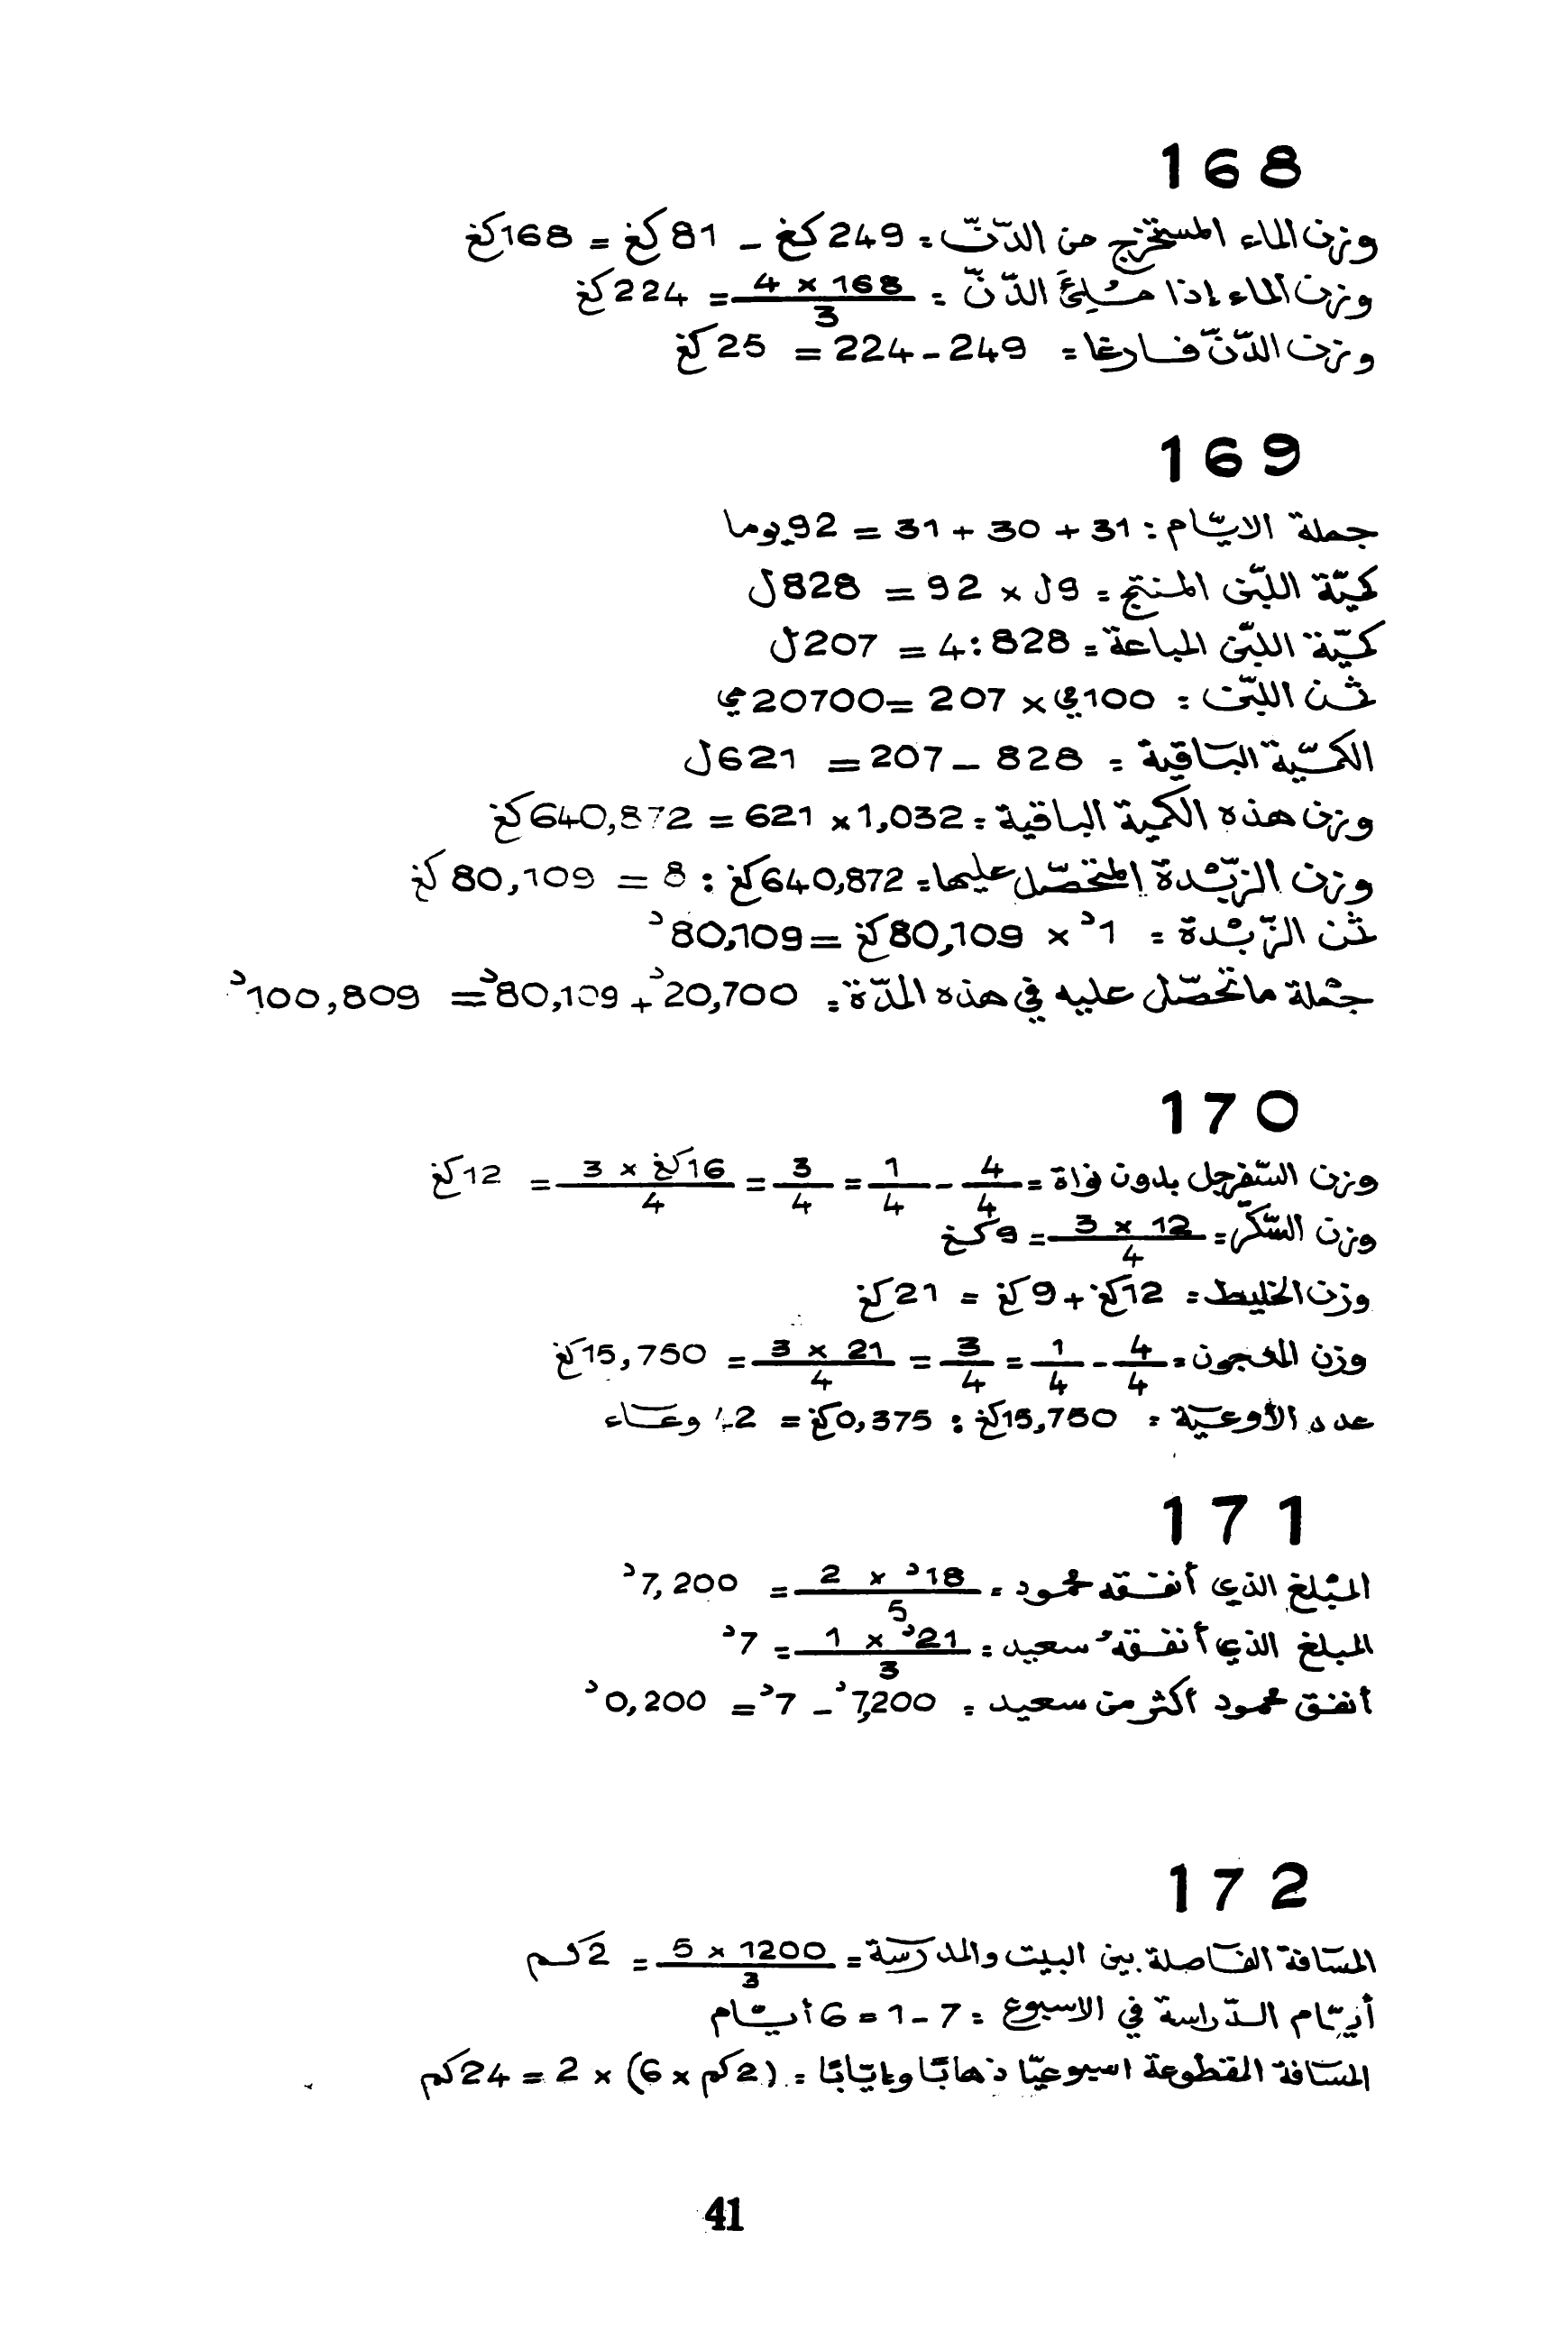 168
وزن الماء المستخرج من الدّنّ = 249كغ - 81كغ = 168كغ
وزن الماء إذا مُلِئَ الدّنّ = 4 × 168 / 3 = 224كغ
وزن الدّنّ فارغا = 249 - 224 = 25كغ
169
جملة الايّام : 31 + 30 + 31 = 92يوما
كميّة اللّبن المنتج = 9ل × 92 = 828ل
كميّة اللبن المباعة = 828 : 4 = 207ل
ثمن اللّبن = 100مي × 207 = 20700مي
الكميّة الباقية = 828 - 207 = 621ل
وزن هذه الكمية الباقية = 1,032 × 621 = 640,872كغ
وزن الزّبدة المتحصّل عليها = 640,872كغ : 8 = 80,109كغ
ثمن الزّبدة = 1د × 80,109كغ = 80,109د
جملة ما تحصّل عليه في هذه المدّة = 20,700د + 80,109د = 100,809د
170
وزن السّفرجل بدون نواة = 4/4 - 1/4 = 3/4 = 16كغ × 3 / 4 = 12كغ
وزن السّكّر = 12 × 3 / 4 = 9كغ
وزن الخليط = 12كغ + 9كغ = 21كغ
وزن المعجون = 4/4 - 1/4 = 3/4 = 21 × 3 / 4 = 15,750كغ
عدد الأوعية = 15,750كغ : 0,375كغ = 42 وعاء
171
المبلغ الذي أنفقه محمود = 18د × 2 / 5 = 7,200د
المبلغ الذي أنفقهُ سعيد = 21د × 1 / 3 = 7د
أنفق محمود أكثر من سعيد = 7,200د - 7د = 0,200د
172
المسافة الفاصلة بين البيت والمدرسة = 1200 × 5 / 3 = 2كم
أيّام الدّراسة في الاسبوع = 7 - 1 = 6أيّام
المسافة المقطوعة اسبوعيّا ذهابًا وإيابًا = (2كم × 6) × 2 = 24كم
41